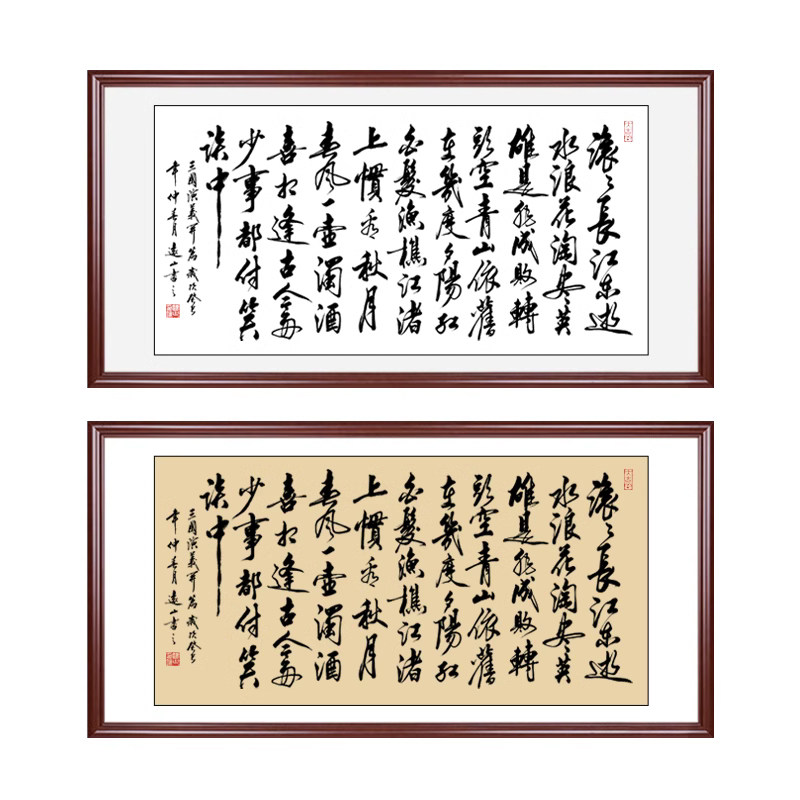 滚々長江东逝
水浪花淘尽英
雄是非成敗轉
頭空青山依舊
在幾度夕陽紅
白髮漁樵江渚
上慣看秋月
春風一壺濁酒
喜相逢古今多
少事都付笑
談中
三國演義開篇歲次癸巳
年仲春月遠山書之
滚々長江东逝
水浪花淘尽英
雄是非成敗轉
頭空青山依舊
在幾度夕陽紅
白髮漁樵江渚
上慣看秋月
春風一壺濁酒
喜相逢古今多
少事都付笑
談中
三國演義開篇歲次癸巳
年仲春月遠山書之